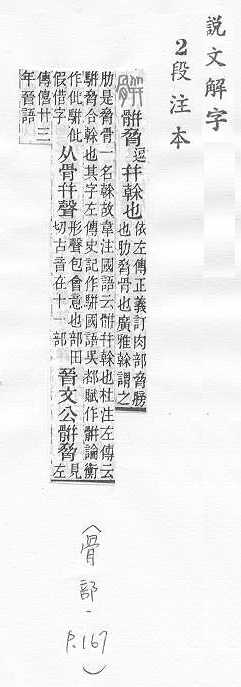 説文解字
2段注本
骿脅逗幷榦也依左傳正義訂肉部脅膀
也肋脅骨也廣雅榦謂之
肋是脅骨一名榦故韋注國語云骿幷榦也杜注左傳云
騈脅合榦也其字左傳史記作騈國語吳都賦作骿論衡
作仳騈仳
假借字
从骨幷聲
形聲包會意也部田
切古音在十一部
晉文公骿脅
見
左
傳僖廿三
年晉語
(骨部-
P.167)